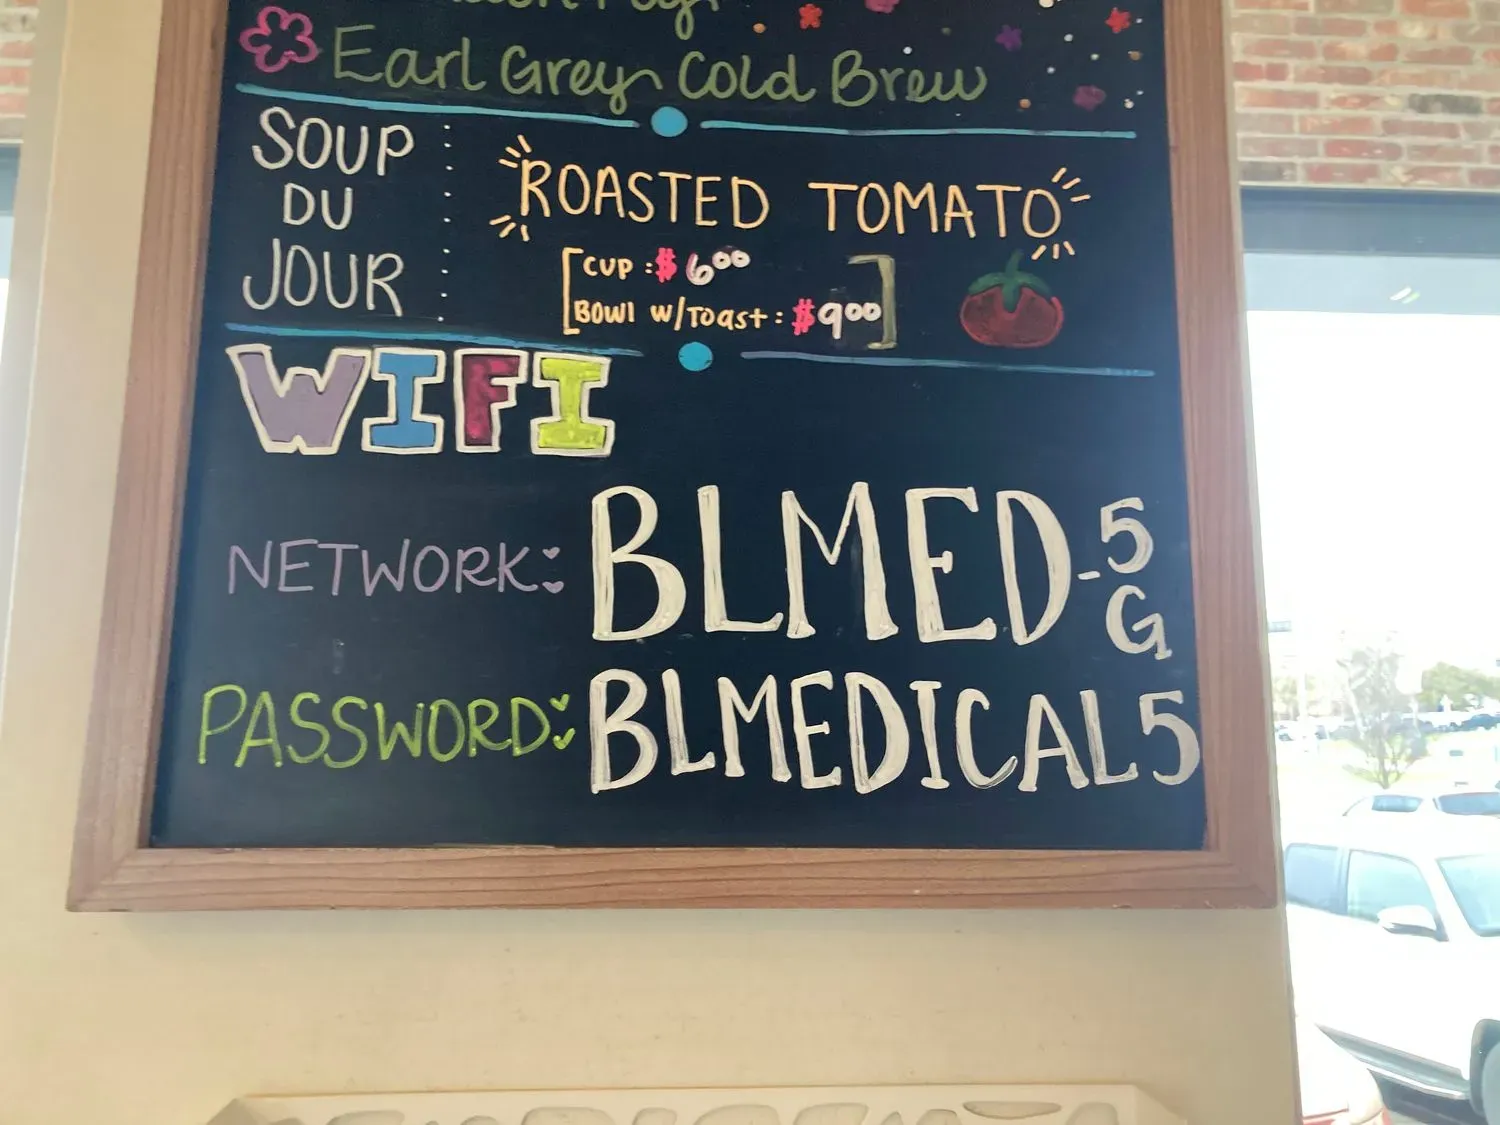 Earl Grey Cold Brew
SOUP DU JOUR
ROASTED TOMATO
CUP : $6.00
BOWL w/Toast : $9.00
WIFI
NETWORK: BLMED-5G
PASSWORD: BLMEDICAL5